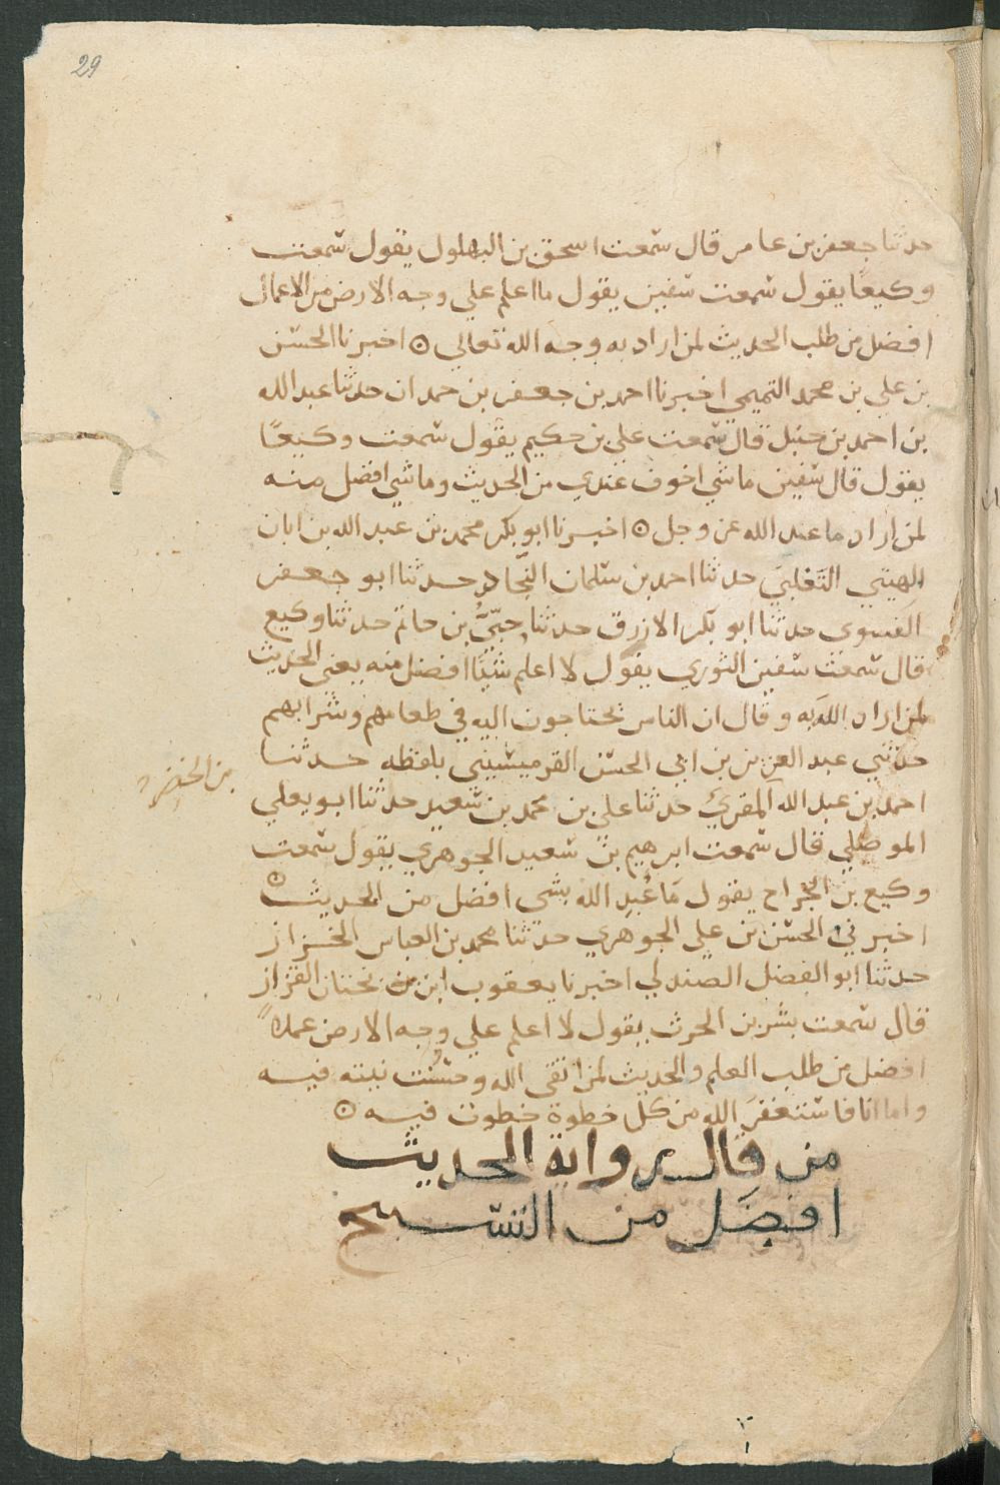 29
حدثنا جعفر بن عامر قال سمعت اسحق بن البهلول يقول سمعت
وكيعًا يقول سمعت سفين يقول ما اعلم علي وجه الارض من الاعمال
افضل من طلب الحديث لمن اراد به وجه الله تعالي ⊙ اخبرنا الحسن
بن علي بن محمد التميمي اخبرنا احمد بن جعفر بن حمدان حدثنا عبد الله
بن احمد بن حنبل قال سمعت علي بن حكيم يقول سمعت وكيعًا
يقول قال سفين ما شي اخوف عندي من الحديث وما شي افضل منه
لمن اراد ما عند الله عز وجل ⊙ اخبرنا ابو بكر محمد بن عبد الله بن ابان
الهيتي التغلبي حدثنا احمد بن سلمان النجّاد حدثنا ابو جعفر
الفسوي حدثنا ابو بكر الازرق حدثنا حبّيُ بن حاتم حدثنا وكيع
قال سمعت سفين الثوري يقول لا اعلم شيًا افضل منه يعني الحديث
لمن اراد الله به وقال ان الناس يحتاجون اليه في طعامهم وشرابهم
حدثني عبد العزيز بن ابي الحسن القرميسيني بلفظه حدثنا
احمد بن عبد الله المقرئ حدثنا علي بن محمد بن سعيد حدثنا ابو يعلي
الموصلي قال سمعت ابرهيم بن سعيد الجوهري يقول سمعت
وكيع بن الجرّاح يقول مَا عُبدِ الله بشي افضل من الحديث ⊙
اخبرني الحسن بن علي الجوهري حدثنا محمد بن العباس الخزاز
حدثنا ابو الفضل الصندلي اخبرنا يعقوب ابن بختان القزاز
قال سمعت بشر بن الحرث يقول لا اعلم علي وجه الارض عملاً
افضل من طلب العلم والحديث لمن اتقى الله وحسُنت نيته فيه
واما انا فاستغفر الله من كل خطوة خطوت فيه ⊙
من قال رواية الحديث
افضَل من التسبيح